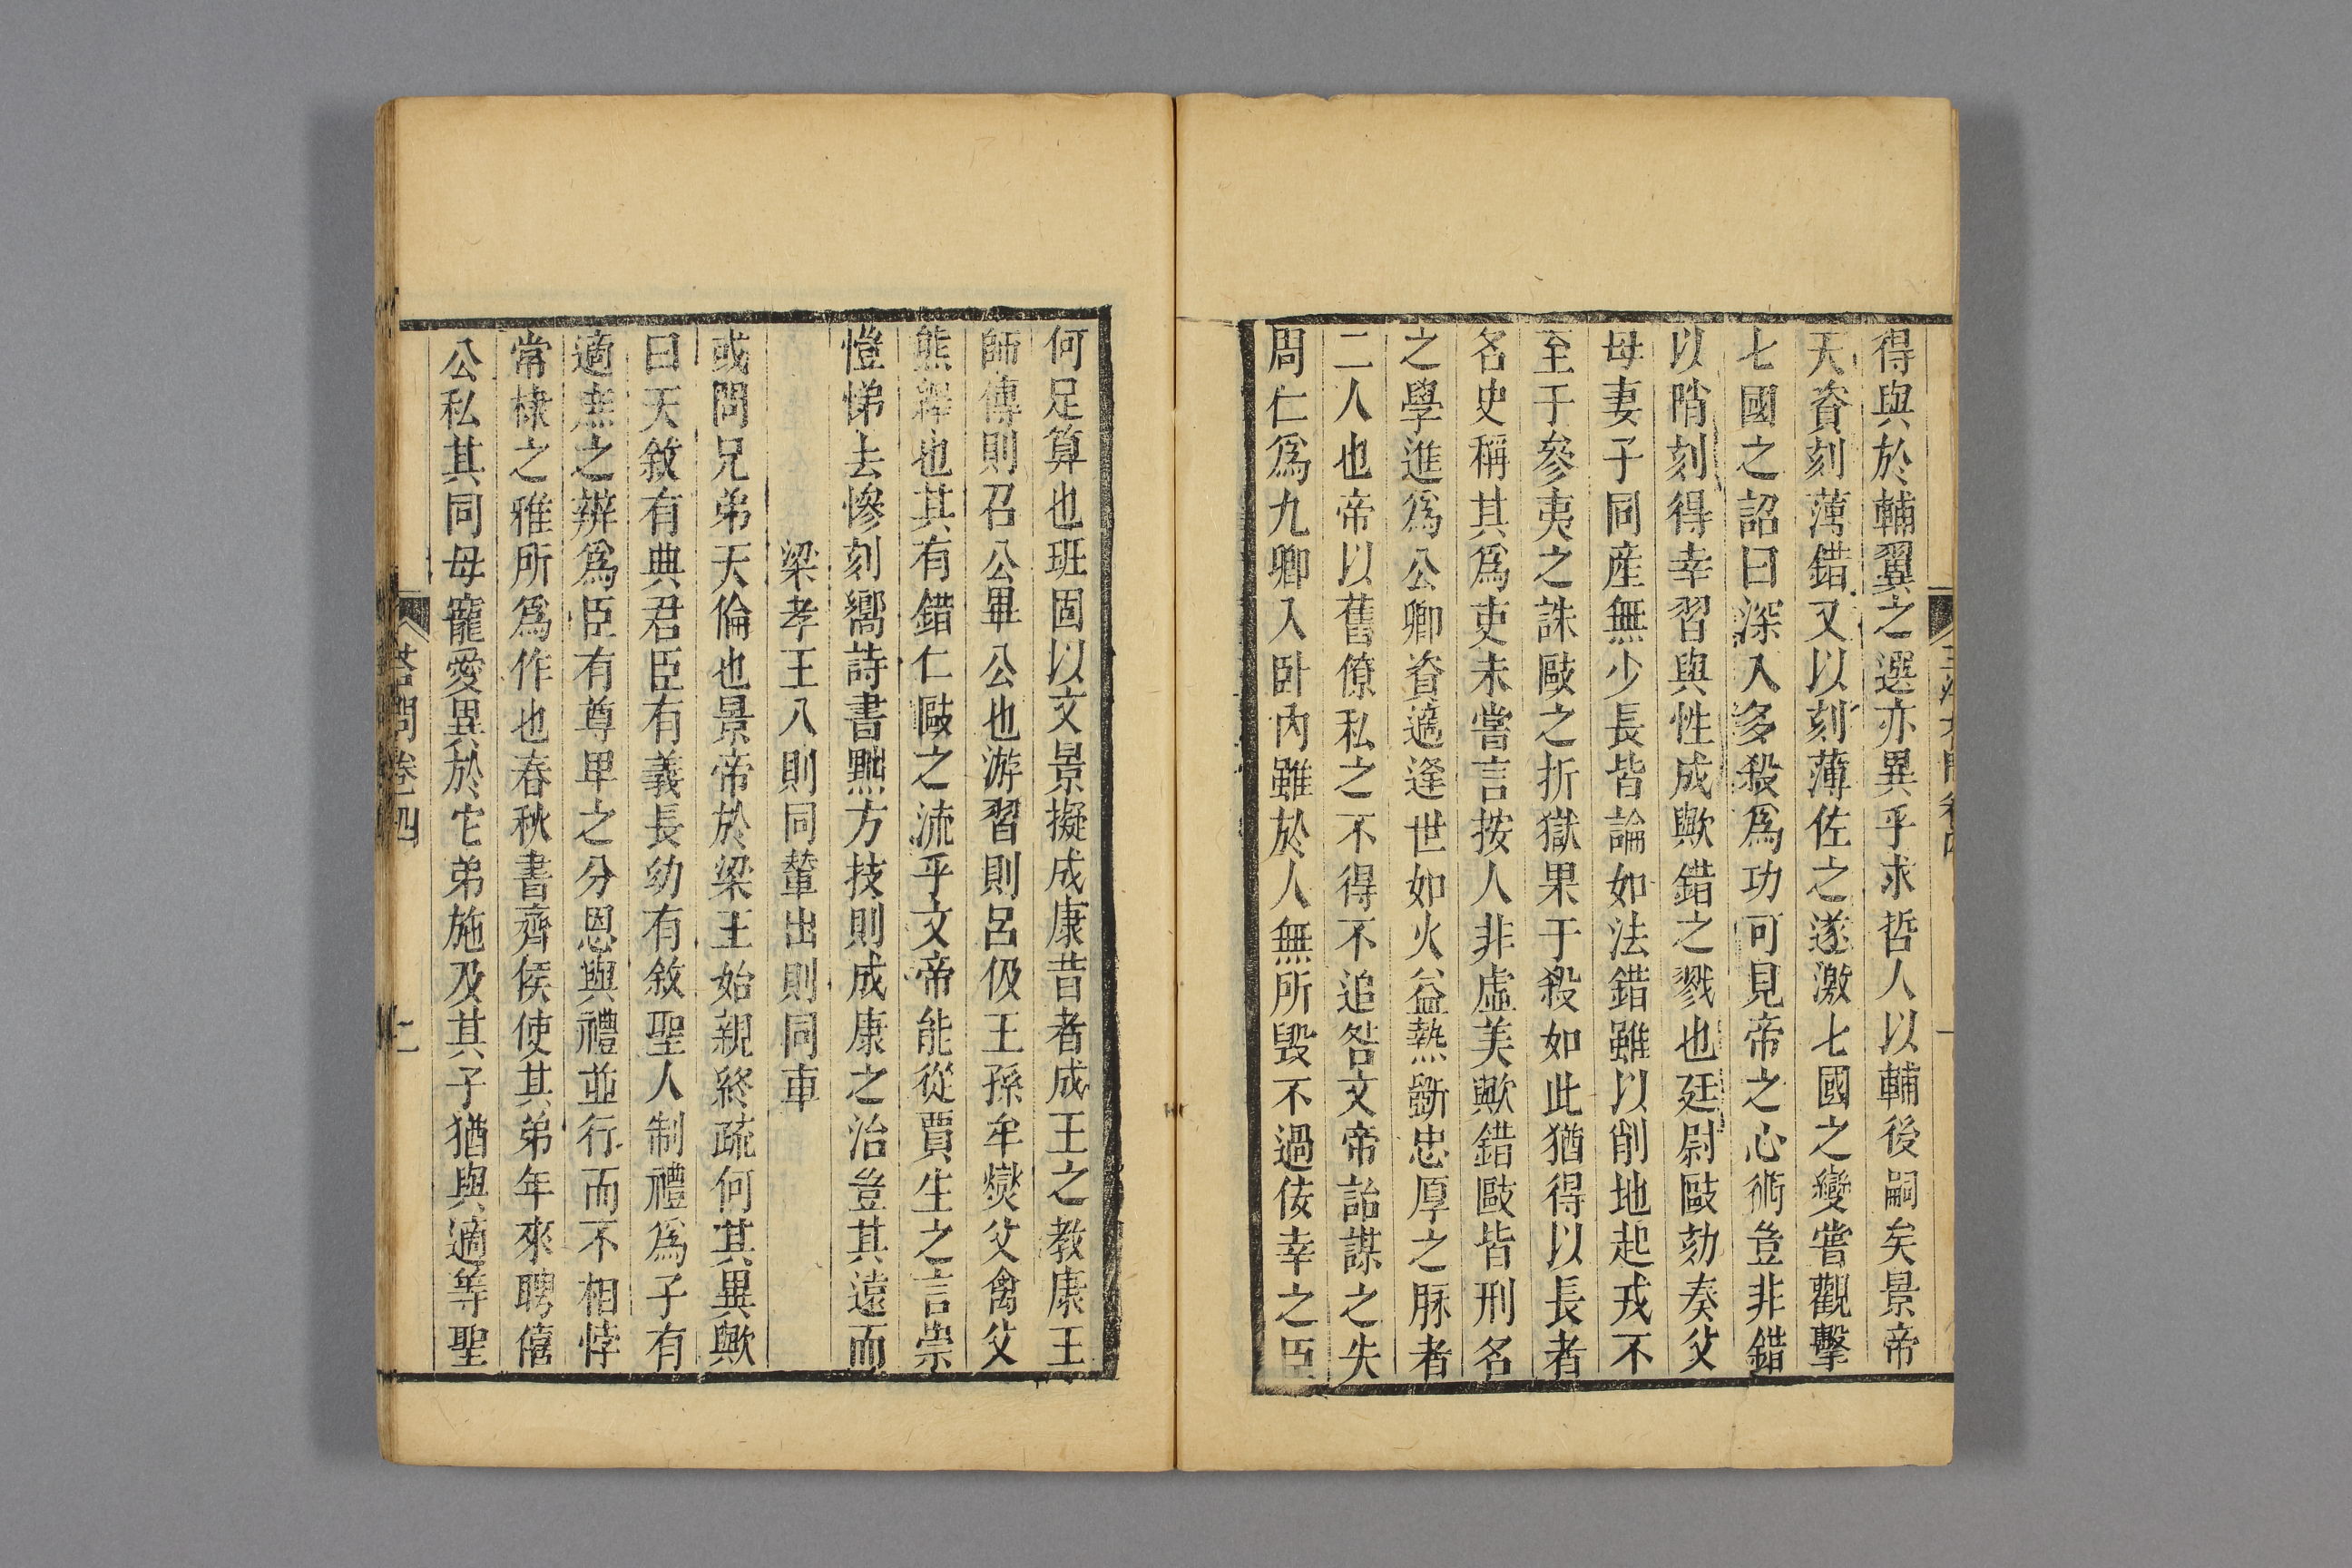 得與於輔翼之選亦異乎求哲人以輔後嗣矣景帝
天資刻薄錯又以刻薄佐之遂激七國之變嘗觀擊
七國之詔曰深入多殺爲功可見帝之心術豈非錯
以陗刻得幸習與性成歟錯之戮也廷尉敺劾奏父
母妻子同産無少長皆論如法錯雖以削地起戎不
至于參夷之誅敺之折獄果于殺如此猶得以長者
名史稱其爲吏未嘗言按人非虛美歟錯敺皆刑名
之學進爲公卿資適逢世如火益熱斲忠厚之脈者
二人也帝以舊僚私之不得不追咎文帝詒謀之失
周仁爲九卿入卧內雖於人無所毀不過佞幸之臣
何足算也班固以文景擬成康昔者成王之教康王
師傅則召公畢公也游習則呂伋王孫牟燮父禽父
熊繹也其有錯仁敺之流乎文帝能從賈生之言崇
愷悌去慘刻嚮詩書黜方技則成康之治豈其遠而
梁孝王入則同輦出則同車
或問兄弟天倫也景帝於梁王始親終疏何其異歟
曰天敘有典君臣有義長幼有敘聖人制禮爲子有
適庶之辨爲臣有尊卑之分恩與禮並行而不相悖
常棣之雅所爲作也春秋書齊侯使其弟年來聘僖
公私其同母寵愛異於它弟施及其子猶與適等聖
答問卷四
七